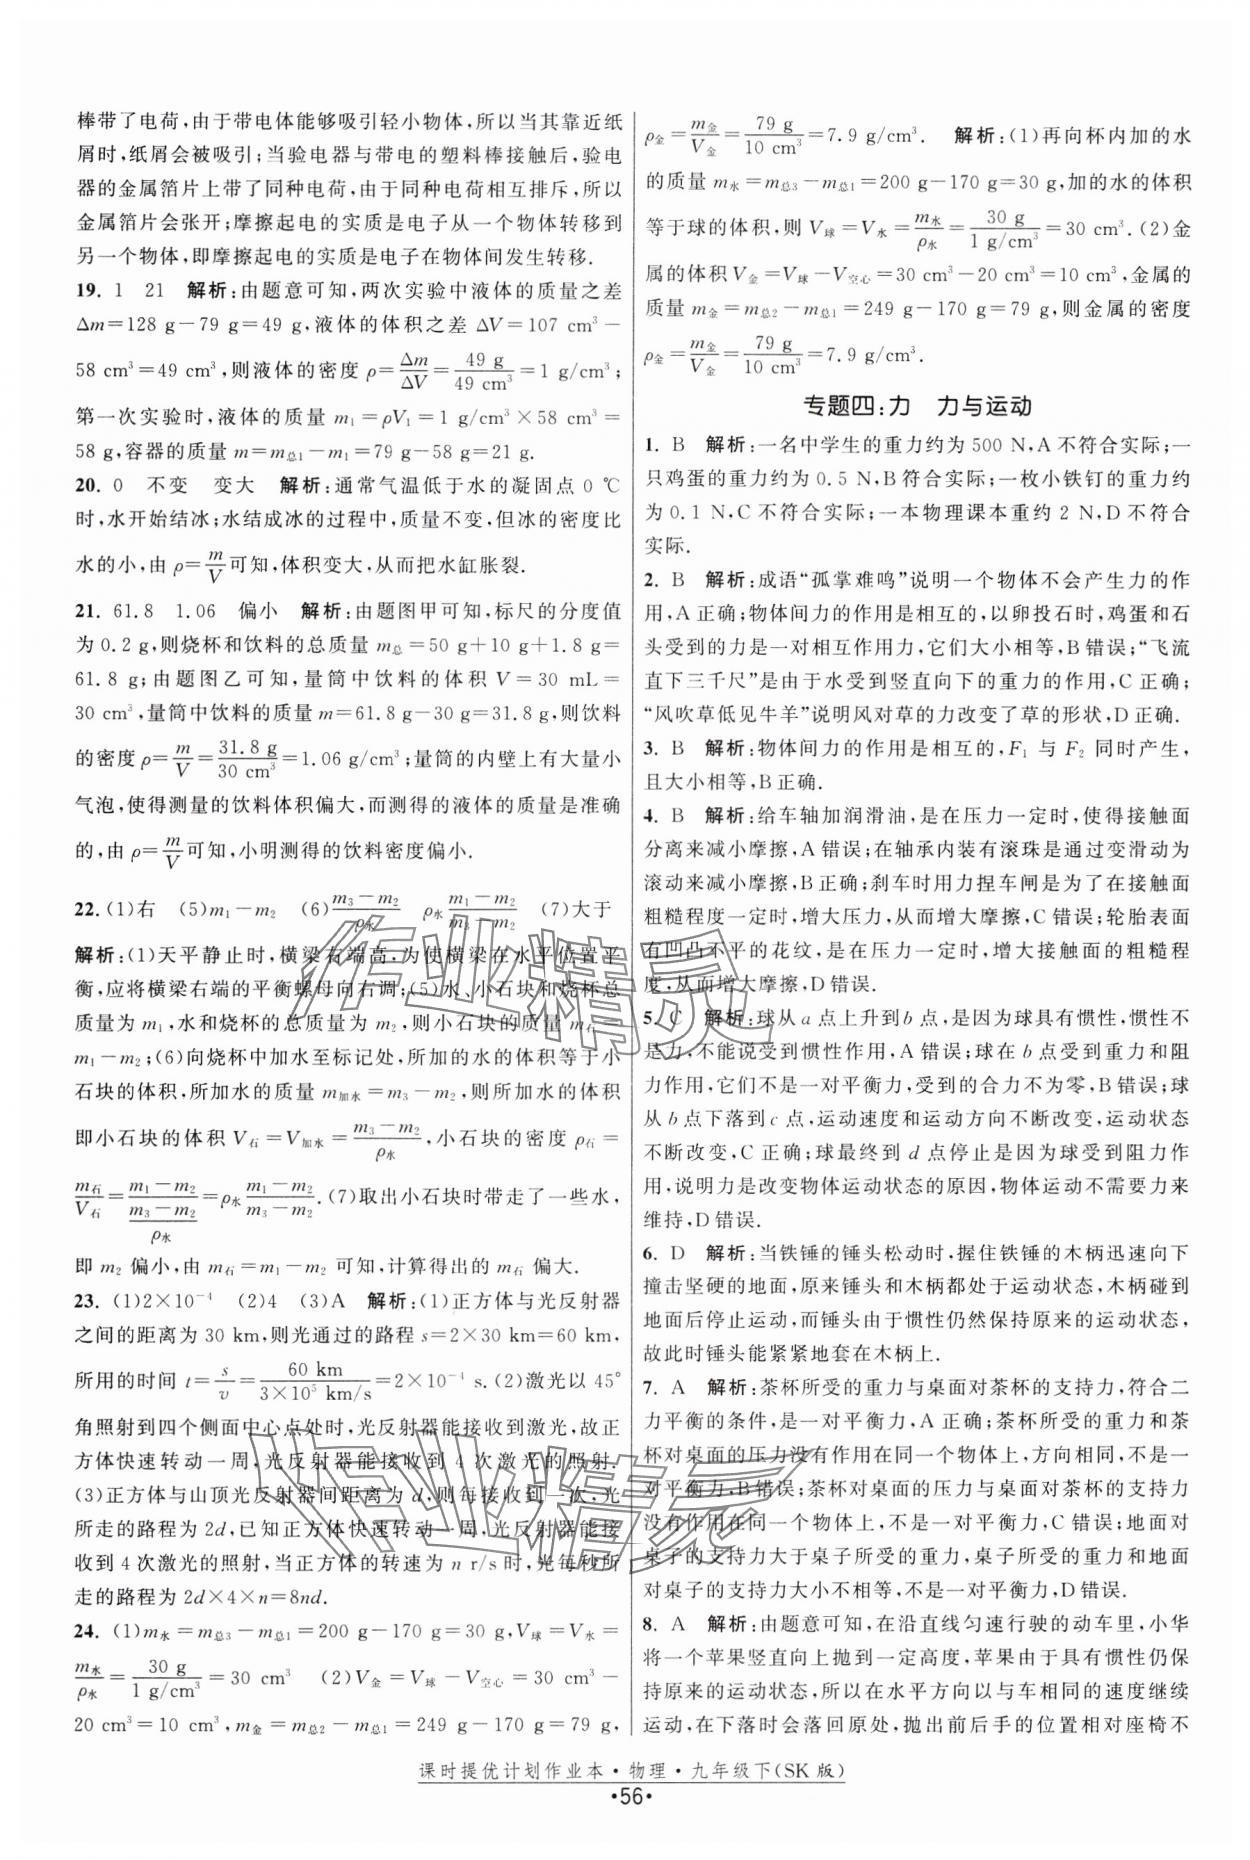 棒带了电荷,由于带电体能够吸引轻小物体,所以当其靠近纸
屑时,纸屑会被吸引;当验电器与带电的塑料棒接触后,验电
器的金属箔片上带了同种电荷,由于同种电荷相互排斥,所以
金属箔片会张开;摩擦起电的实质是电子从一个物体转移到
另一个物体,即摩擦起电的实质是电子在物体间发生转移.
19. 1 21 解析:由题意可知,两次实验中液体的质量之差
Δm=128 g-79 g=49 g,液体的体积之差 ΔV=107 cm³-
58 cm³=49 cm³,则液体的密度 ρ=Δm/ΔV=49 g/49 cm³=1 g/cm³;
第一次实验时,液体的质量 m₁=ρV₁=1 g/cm³×58 cm³=
58 g,容器的质量 m=m总1-m₁=79 g-58 g=21 g.
20. 0 不变 变大 解析:通常气温低于水的凝固点 0 ℃
时,水开始结冰;水结成冰的过程中,质量不变,但冰的密度比
水的小,由 ρ=m/V可知,体积变大,从而把水缸胀裂.
21. 61.8 1.06 偏小 解析:由题图甲可知,标尺的分度值
为 0.2 g,则烧杯和饮料的总质量 m总=50 g+10 g+1.8 g=
61.8 g;由题图乙可知,量筒中饮料的体积 V=30 mL=
30 cm³,量筒中饮料的质量 m=61.8 g-30 g=31.8 g,则饮料
的密度 ρ=m/V=31.8 g/30 cm³=1.06 g/cm³;量筒的内壁上有大量小
气泡,使得测量的饮料体积偏大,而测得的液体的质量是准确
的,由 ρ=m/V可知,小明测得的饮料密度偏小.
22. (1)右 (5)m₁-m₂ (6)(m₃-m₂)/ρ水 ρ水(m₁-m₂)/(m₃-m₂) (7)大于
解析:(1)天平静止时,横梁右端高,为使横梁在水平位置平
衡,应将横梁右端的平衡螺母向右调;(5)水、小石块和烧杯总
质量为 m₁,水和烧杯的总质量为 m₂,则小石块的质量 m石=
m₁-m₂;(6)向烧杯中加水至标记处,所加的水的体积等于小
石块的体积,所加水的质量 m加水=m₃-m₂,则所加水的体积
即小石块的体积 V石=V加水=(m₃-m₂)/ρ水,小石块的密度 ρ石=
m石/V石=(m₁-m₂)/((m₃-m₂)/ρ水)=ρ水(m₁-m₂)/(m₃-m₂).(7)取出小石块时带走了一些水,
即 m₂ 偏小,由 m石=m₁-m₂ 可知,计算得出的 m石 偏大.
23. (1)2×10⁻⁴ (2)4 (3)A 解析:(1)正方体与光反射器
之间的距离为 30 km,则光通过的路程 s=2×30 km=60 km,
所用的时间 t=s/v=60 km/(3×10⁵ km/s)=2×10⁻⁴ s.(2)激光以 45°
角照射到四个侧面中心点处时,光反射器能接收到激光,故正
方体快速转动一周,光反射器能接收到 4 次激光的照射.
(3)正方体与山顶光反射器间距离为 d,则每接收到一次,光
所走的路程为 2d,已知正方体快速转动一周,光反射器能接
收到 4 次激光的照射,当正方体的转速为 n r/s 时,光每秒所
走的路程为 2d×4×n=8nd.
24. (1)m水=m总3-m总1=200 g-170 g=30 g,V球=V水=
m水/ρ水=30 g/1 g/cm³=30 cm³ (2)V金=V球-V空心=30 cm³-
20 cm³=10 cm³,m金=m总2-m总1=249 g-170 g=79 g,
ρ金=m金/V金=79 g/10 cm³=7.9 g/cm³. 解析:(1)再向杯内加的水
的质量 m水=m总3-m总1=200 g-170 g=30 g,加的水的体积
等于球的体积,则 V球=V水=m水/ρ水=30 g/1 g/cm³=30 cm³.(2)金
属的体积 V金=V球-V空心=30 cm³-20 cm³=10 cm³,金属的
质量 m金=m总2-m总1=249 g-170 g=79 g,则金属的密度
ρ金=m金/V金=79 g/10 cm³=7.9 g/cm³.
专题四:力 力与运动
1. B 解析:一名中学生的重力约为 500 N,A 不符合实际;一
只鸡蛋的重力约为 0.5 N,B 符合实际;一枚小铁钉的重力约
为 0.1 N,C 不符合实际;一本物理课本重约 2 N,D 不符合
实际.
2. B 解析:成语“孤掌难鸣”说明一个物体不会产生力的作
用,A 正确;物体间力的作用是相互的,以卵投石时,鸡蛋和石
头受到的力是一对相互作用力,它们大小相等,B 错误;“飞流
直下三千尺”是由于水受到竖直向下的重力的作用,C 正确;
“风吹草低见牛羊”说明风对草的力改变了草的形状,D 正确.
3. B 解析:物体间力的作用是相互的,F₁ 与 F₂ 同时产生,
且大小相等,B 正确.
4. B 解析:给车轴加润滑油,是在压力一定时,使得接触面
分离来减小摩擦,A 错误;在轴承内装有滚珠是通过变滑动为
滚动来减小摩擦,B 正确;刹车时用力捏车闸是为了在接触面
粗糙程度一定时,增大压力,从而增大摩擦,C 错误;轮胎表面
有凹凸不平的花纹,是在压力一定时,增大接触面的粗糙程
度,从而增大摩擦,D 错误.
5. C 解析:球从 a 点上升到 b 点,是因为球具有惯性,惯性不
是力,不能说受到惯性作用,A 错误;球在 b 点受到重力和阻
力作用,它们不是一对平衡力,受到的合力不为零,B 错误;球
从 b 点下落到 c 点,运动速度和运动方向不断改变,运动状态
不断改变,C 正确;球最终到 d 点停止是因为球受到阻力作
用,说明力是改变物体运动状态的原因,物体运动不需要力来
维持,D 错误.
6. D 解析:当铁锤的锤头松动时,握住铁锤的木柄迅速向下
撞击坚硬的地面,原来锤头和木柄都处于运动状态,木柄碰到
地面后停止运动,而锤头由于惯性仍然保持原来的运动状态,
故此时锤头能紧紧地套在木柄上.
7. A 解析:茶杯所受的重力与桌面对茶杯的支持力,符合二
力平衡的条件,是一对平衡力,A 正确;茶杯所受的重力和茶
杯对桌面的压力没有作用在同一个物体上,方向相同,不是一
对平衡力,B 错误;茶杯对桌面的压力与桌面对茶杯的支持力
没有作用在同一个物体上,不是一对平衡力,C 错误;地面对
桌子的支持力大于桌子所受的重力,桌子所受的重力和地面
对桌子的支持力大小不相等,不是一对平衡力,D 错误.
8. A 解析:由题意可知,在沿直线匀速行驶的动车里,小华
将一个苹果竖直向上抛到一定高度,苹果由于具有惯性仍保
持原来的运动状态,所以在水平方向以与车相同的速度继续
运动,在下落时会落回原处,抛出前后手的位置相对座椅不
课时提优计划作业本·物理·九年级下(SK 版)
·56·
作业精灵
作业精灵